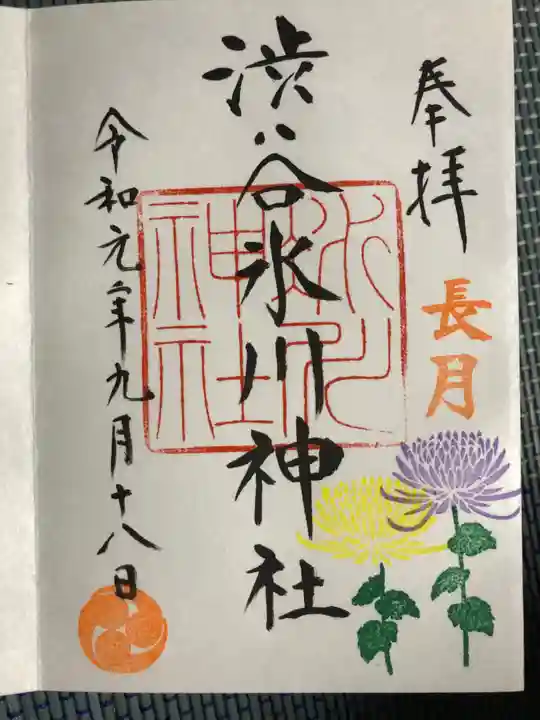 奉拝
長月
渋谷氷川神社
氷川神社
令和元年九月十八日